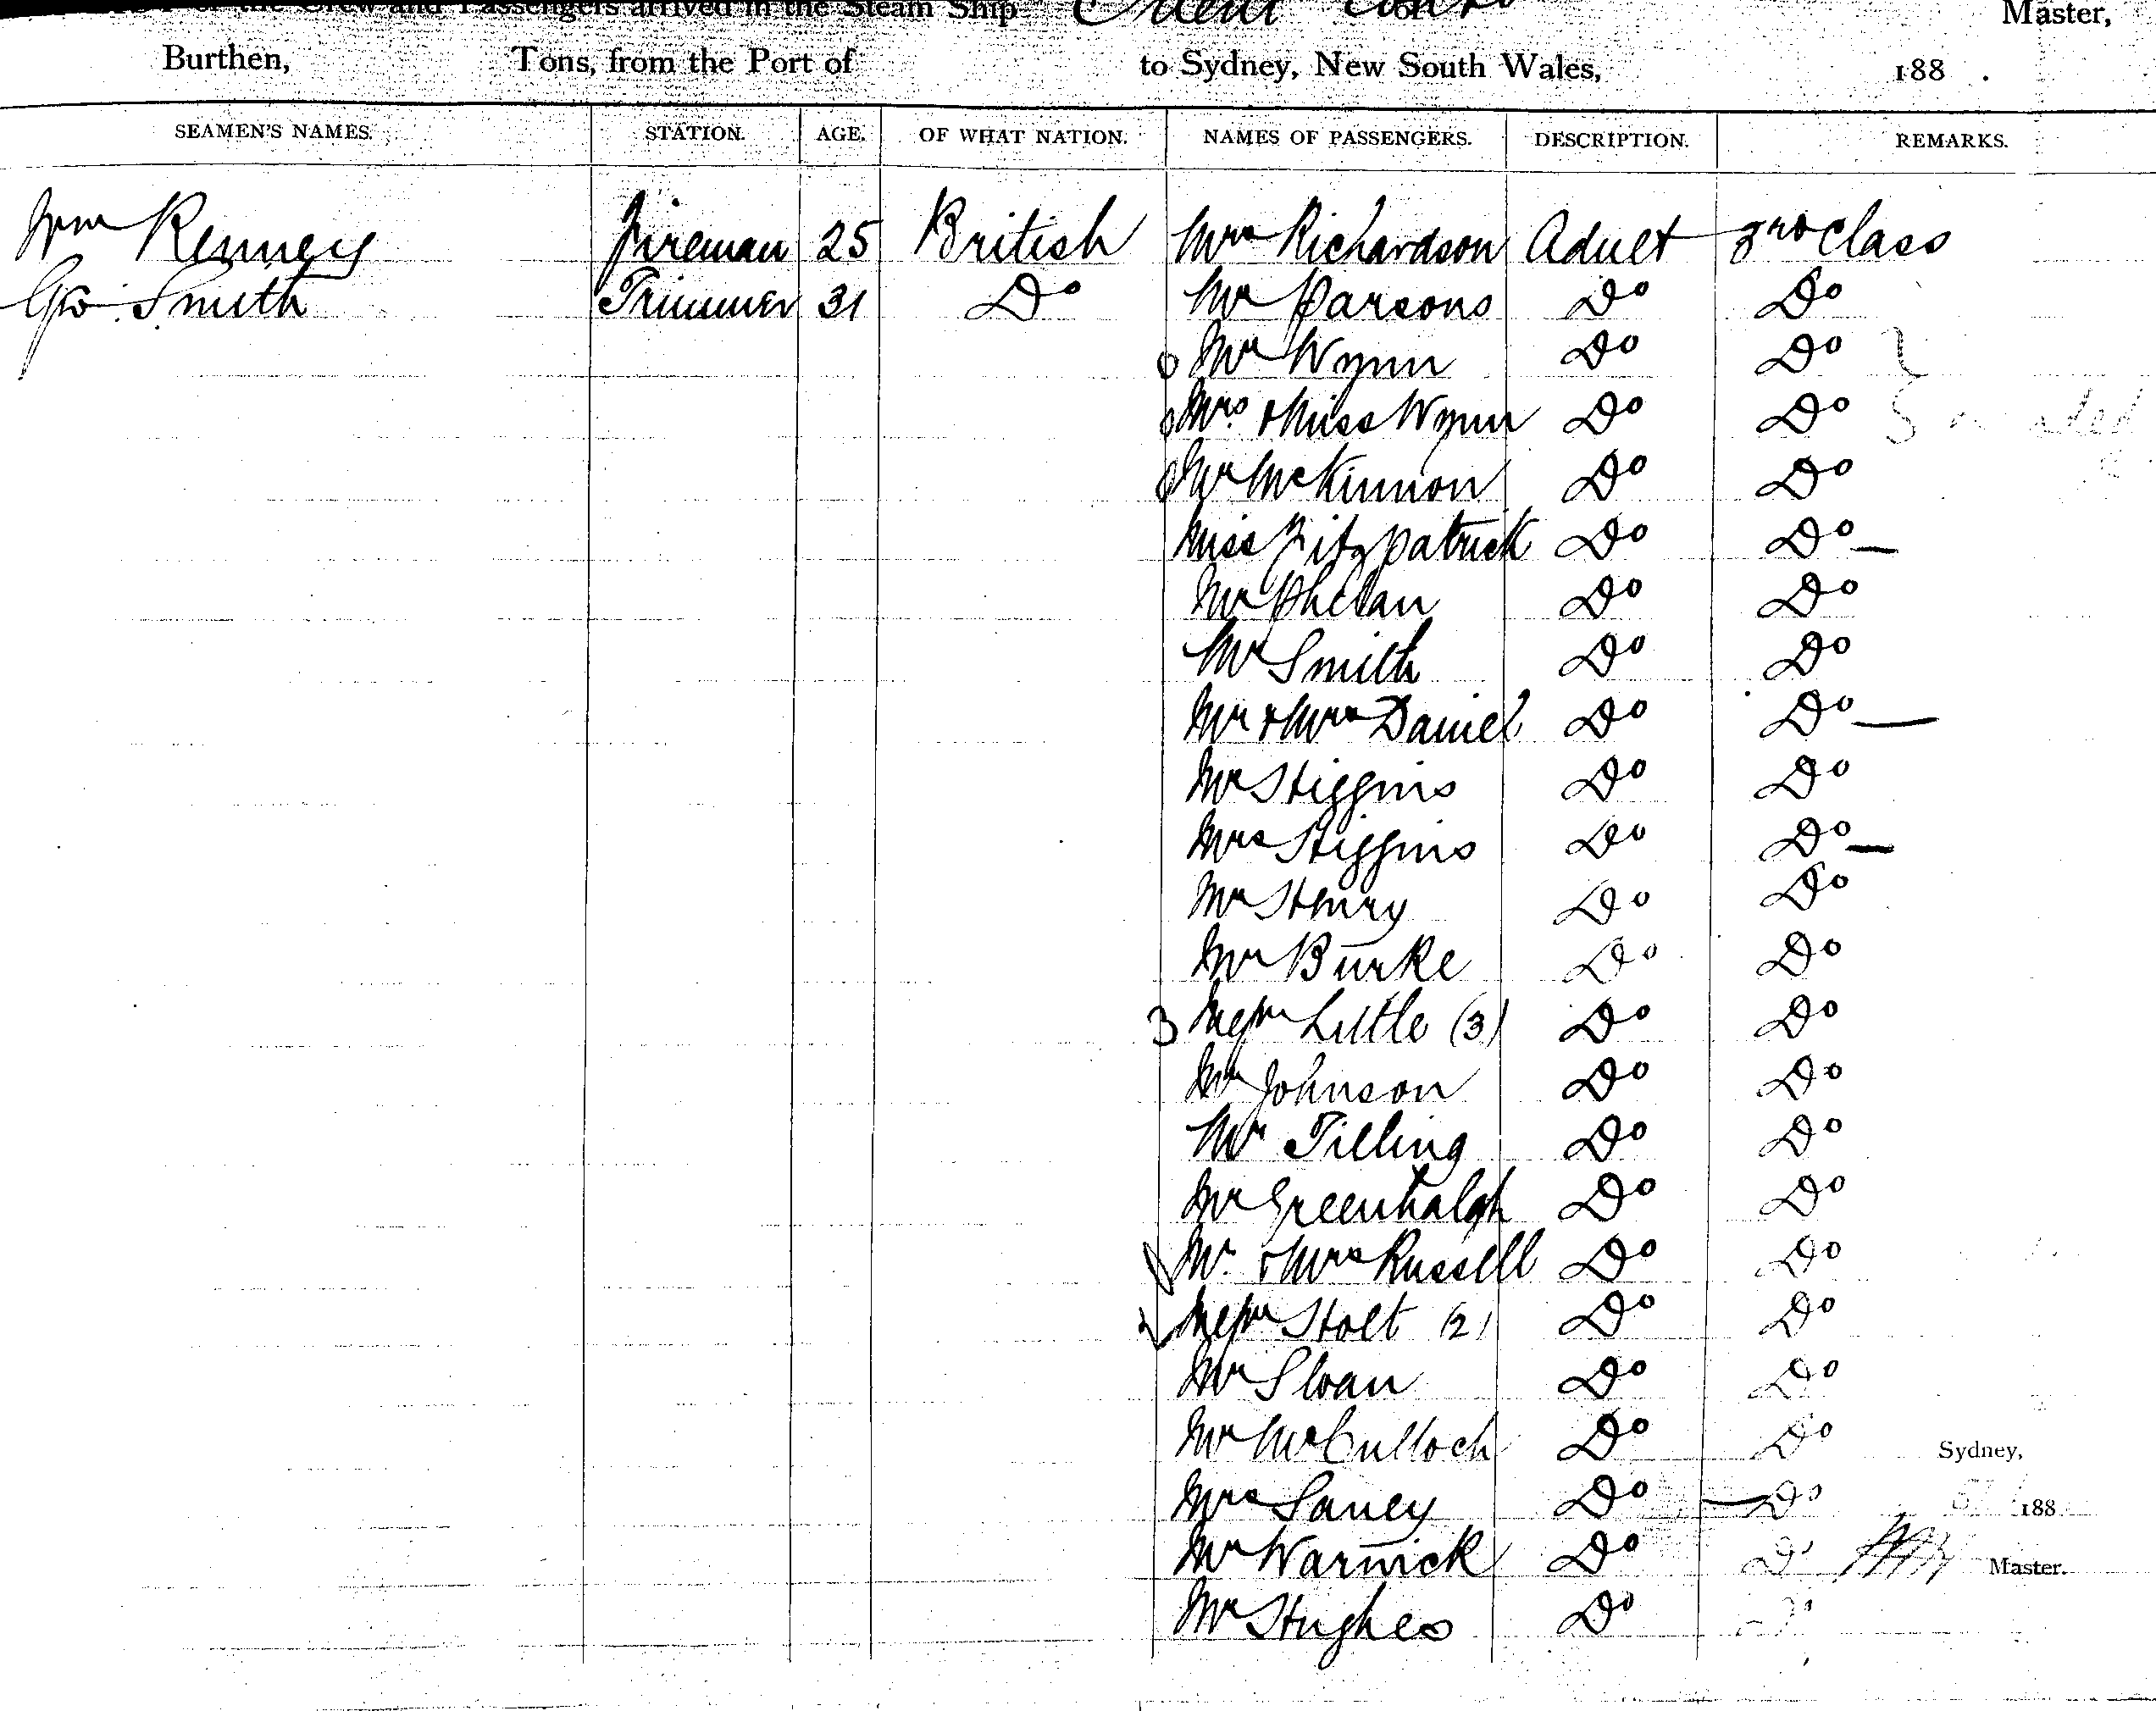 the Crew and Passengers arrived in the Steam Ship Orient Master,
Burthen, Tons, from the Port of to Sydney, New South Wales, 188 .
SEAMEN'S NAMES. STATION. AGE. OF WHAT NATION. NAMES OF PASSENGERS. DESCRIPTION. REMARKS.
Wm Kenney Fireman 25 British Mrs Richardson Adult 3rd Class
Geo. Smith Trimmer 31 Do Mr Parsons Do Do
Mr Wynn Do Do
Mrs & Miss Wynn Do Do
Mr McKinnon Do Do
Miss Fitzpatrick Do Do —
Mr Phelan Do Do
Mr Smith Do Do
Mr & Mrs Daniel Do Do —
Mr Higgins Do Do
Mrs Higgins Do Do —
Mr Henry Do Do
Mr Burke Do Do
3 Messrs Little (3) Do Do
Mr Johnson Do Do
Mr Tilling Do Do
Mr Greenhalgh Do Do
Mr. & Mrs Russell Do Do
Messrs Holt (2) Do Do
Mr Sloan Do Do
Mr McCulloch Do Do
Sydney,
Mrs Laney Do — Do
188
Mr Warwick Do Do
Master.
Mr Hughes Do Do